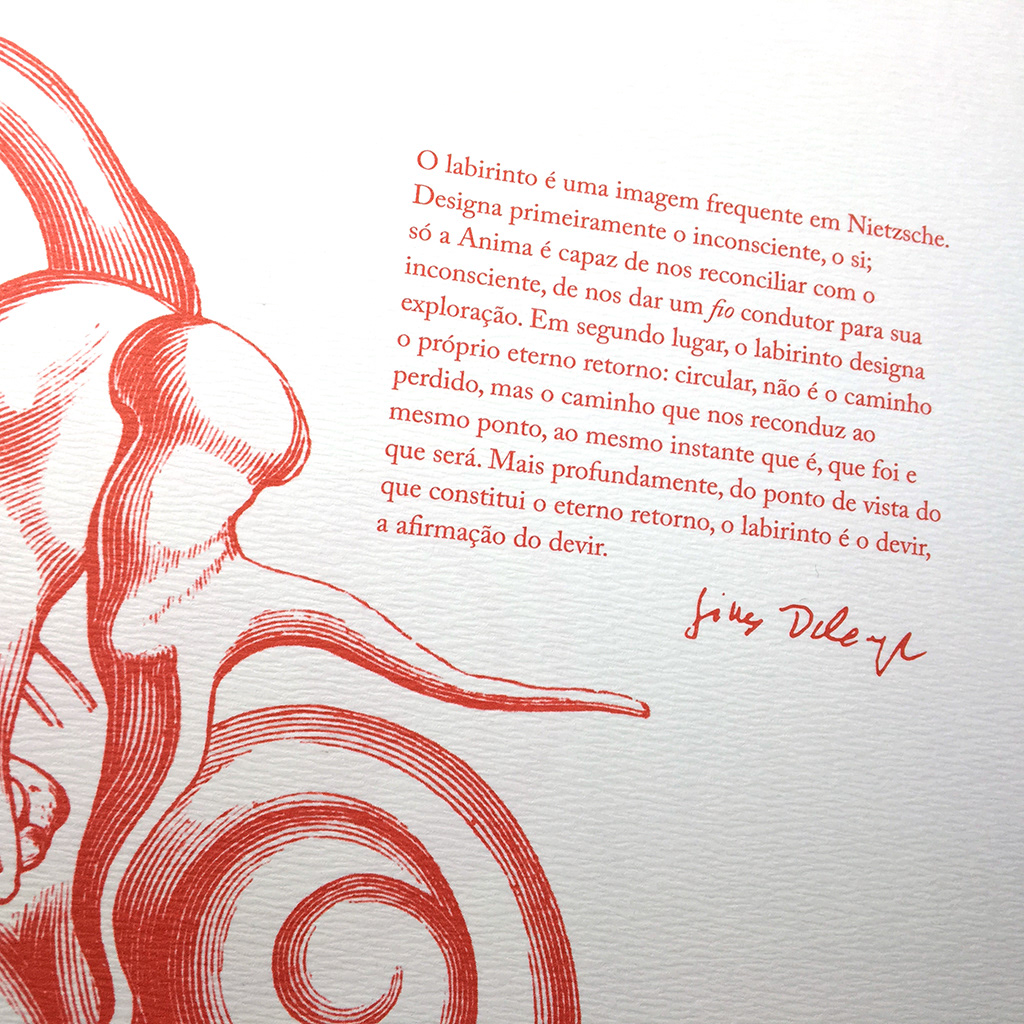 O labirinto é uma imagem frequente em Nietzsche.
Designa primeiramente o inconsciente, o si;
só a Anima é capaz de nos reconciliar com o
inconsciente, de nos dar um fio condutor para sua
exploração. Em segundo lugar, o labirinto designa
o próprio eterno retorno: circular, não é o caminho
perdido, mas o caminho que nos reconduz ao
mesmo ponto, ao mesmo instante que é, que foi e
que será. Mais profundamente, do ponto de vista do
que constitui o eterno retorno, o labirinto é o devir,
a afirmação do devir.
Gilles Deleuze